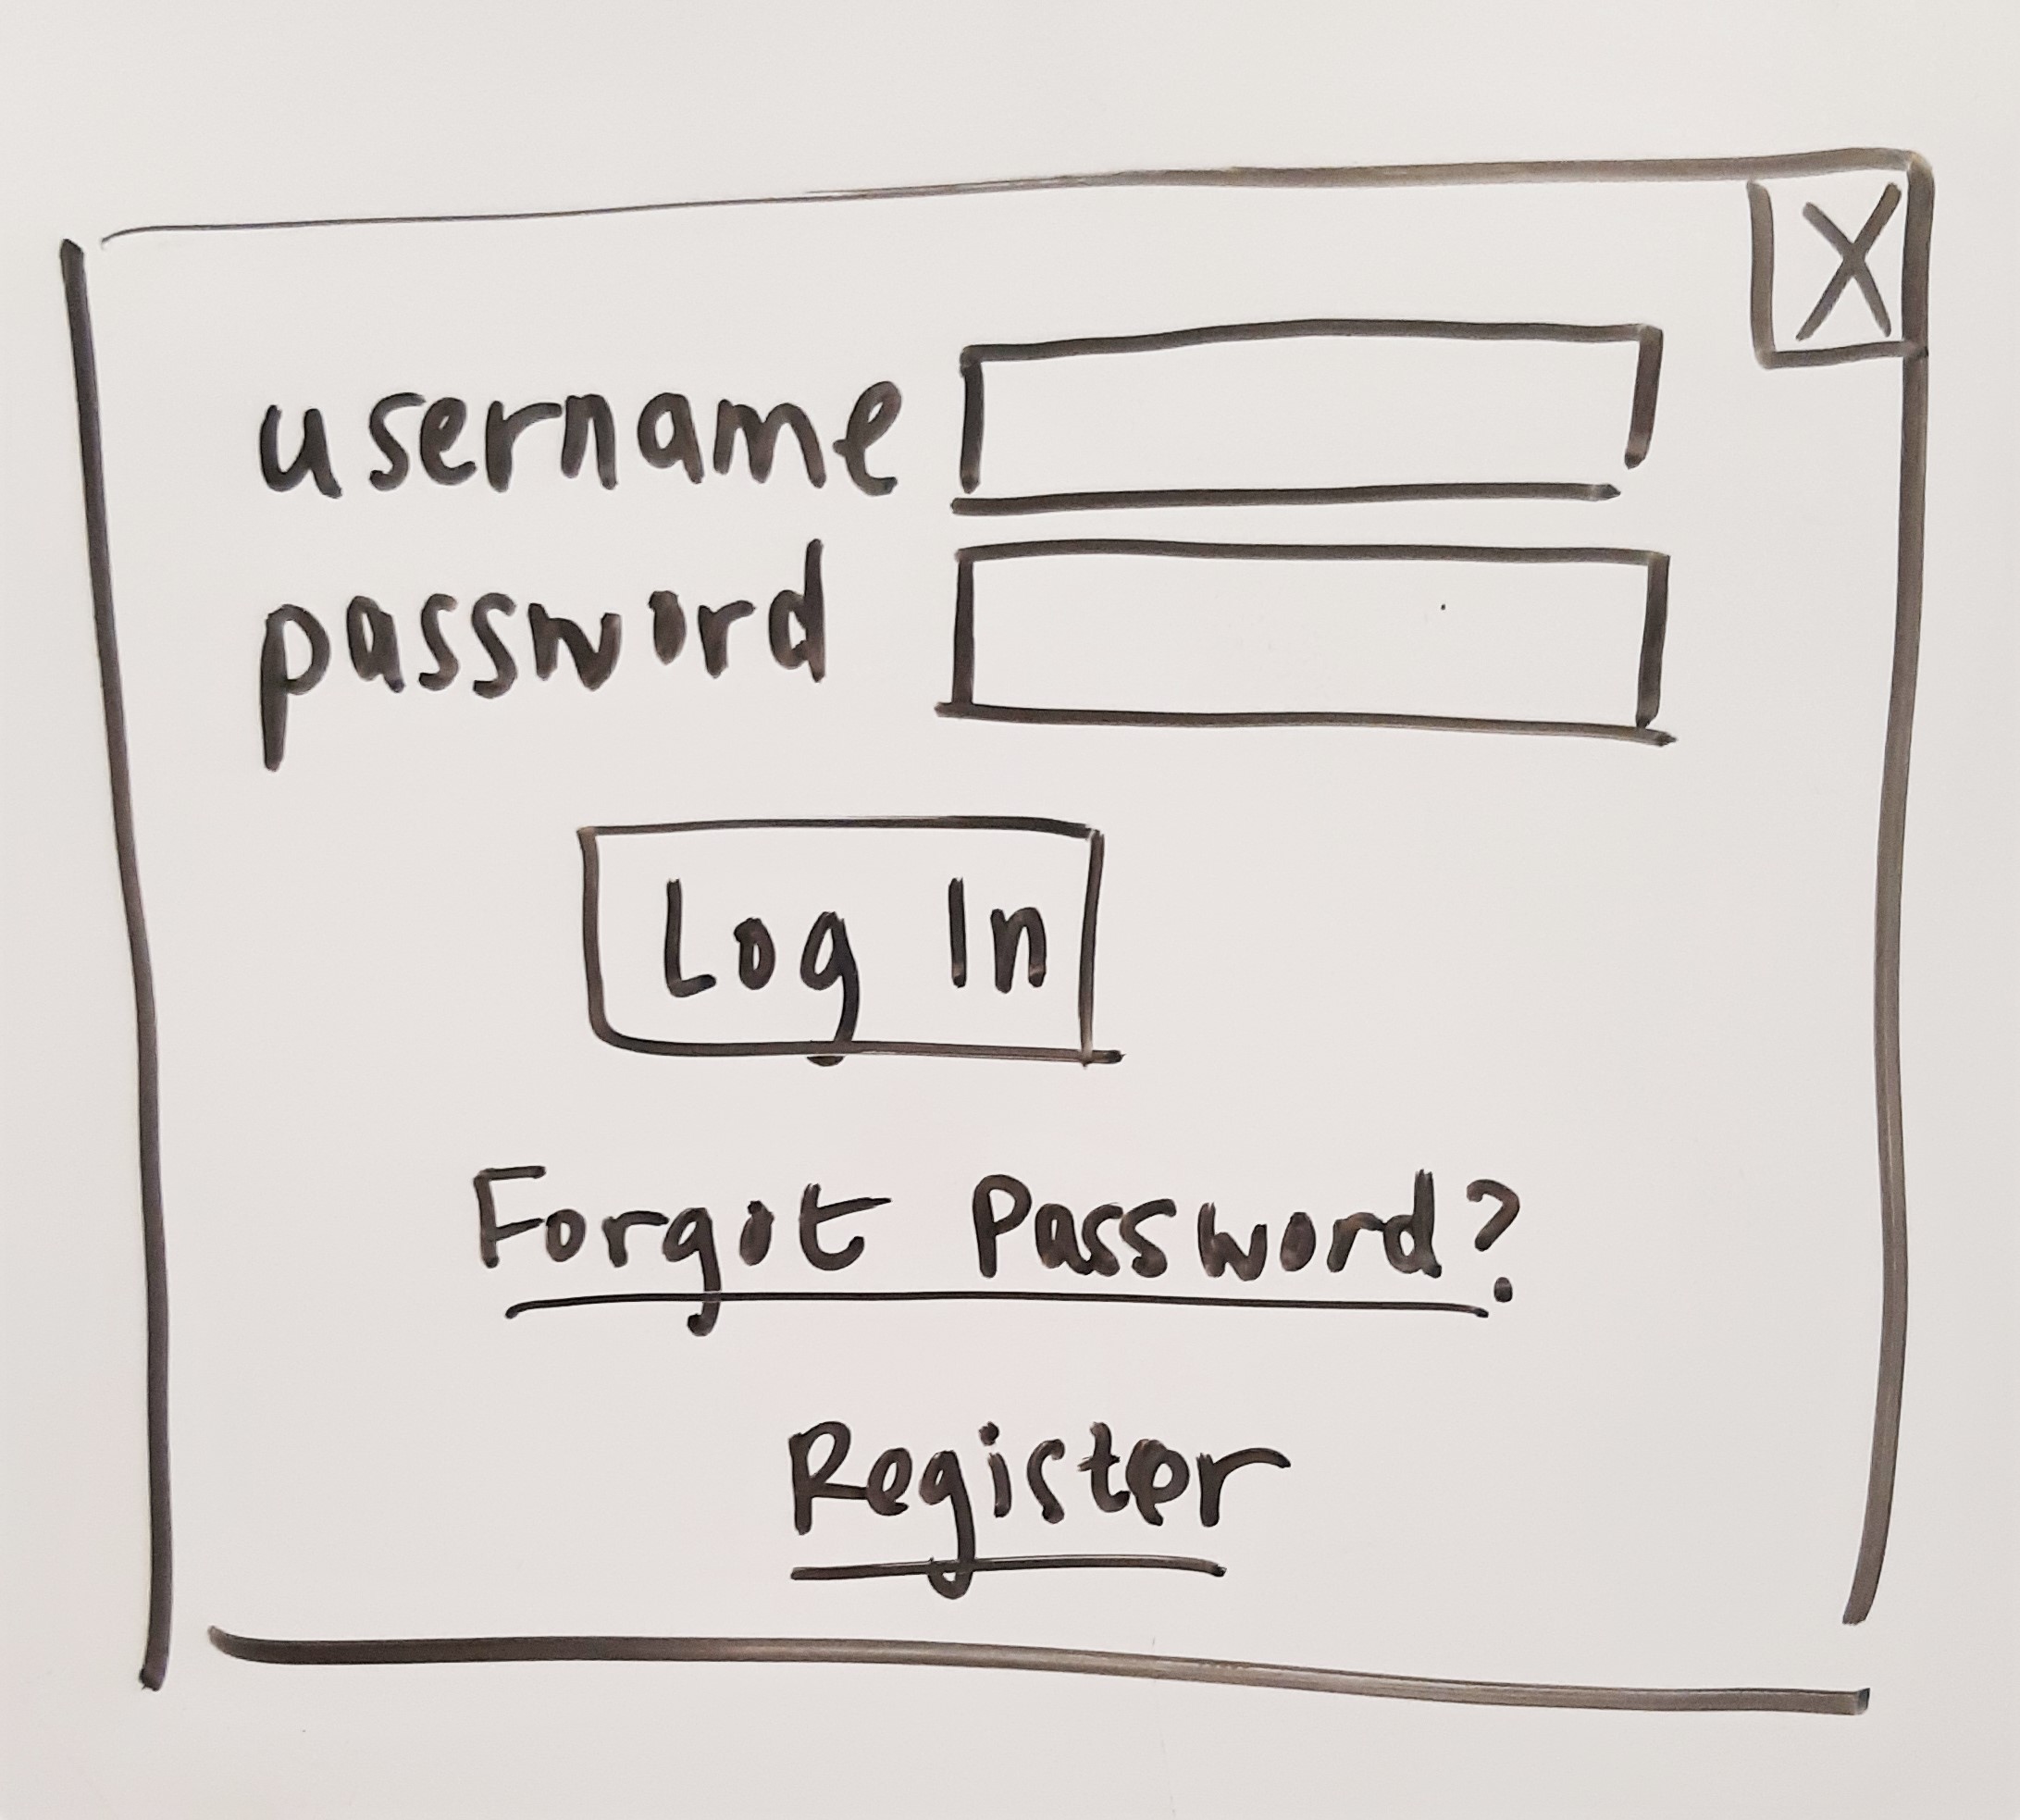 X
username
password
Log In
Forgot Password?
Register